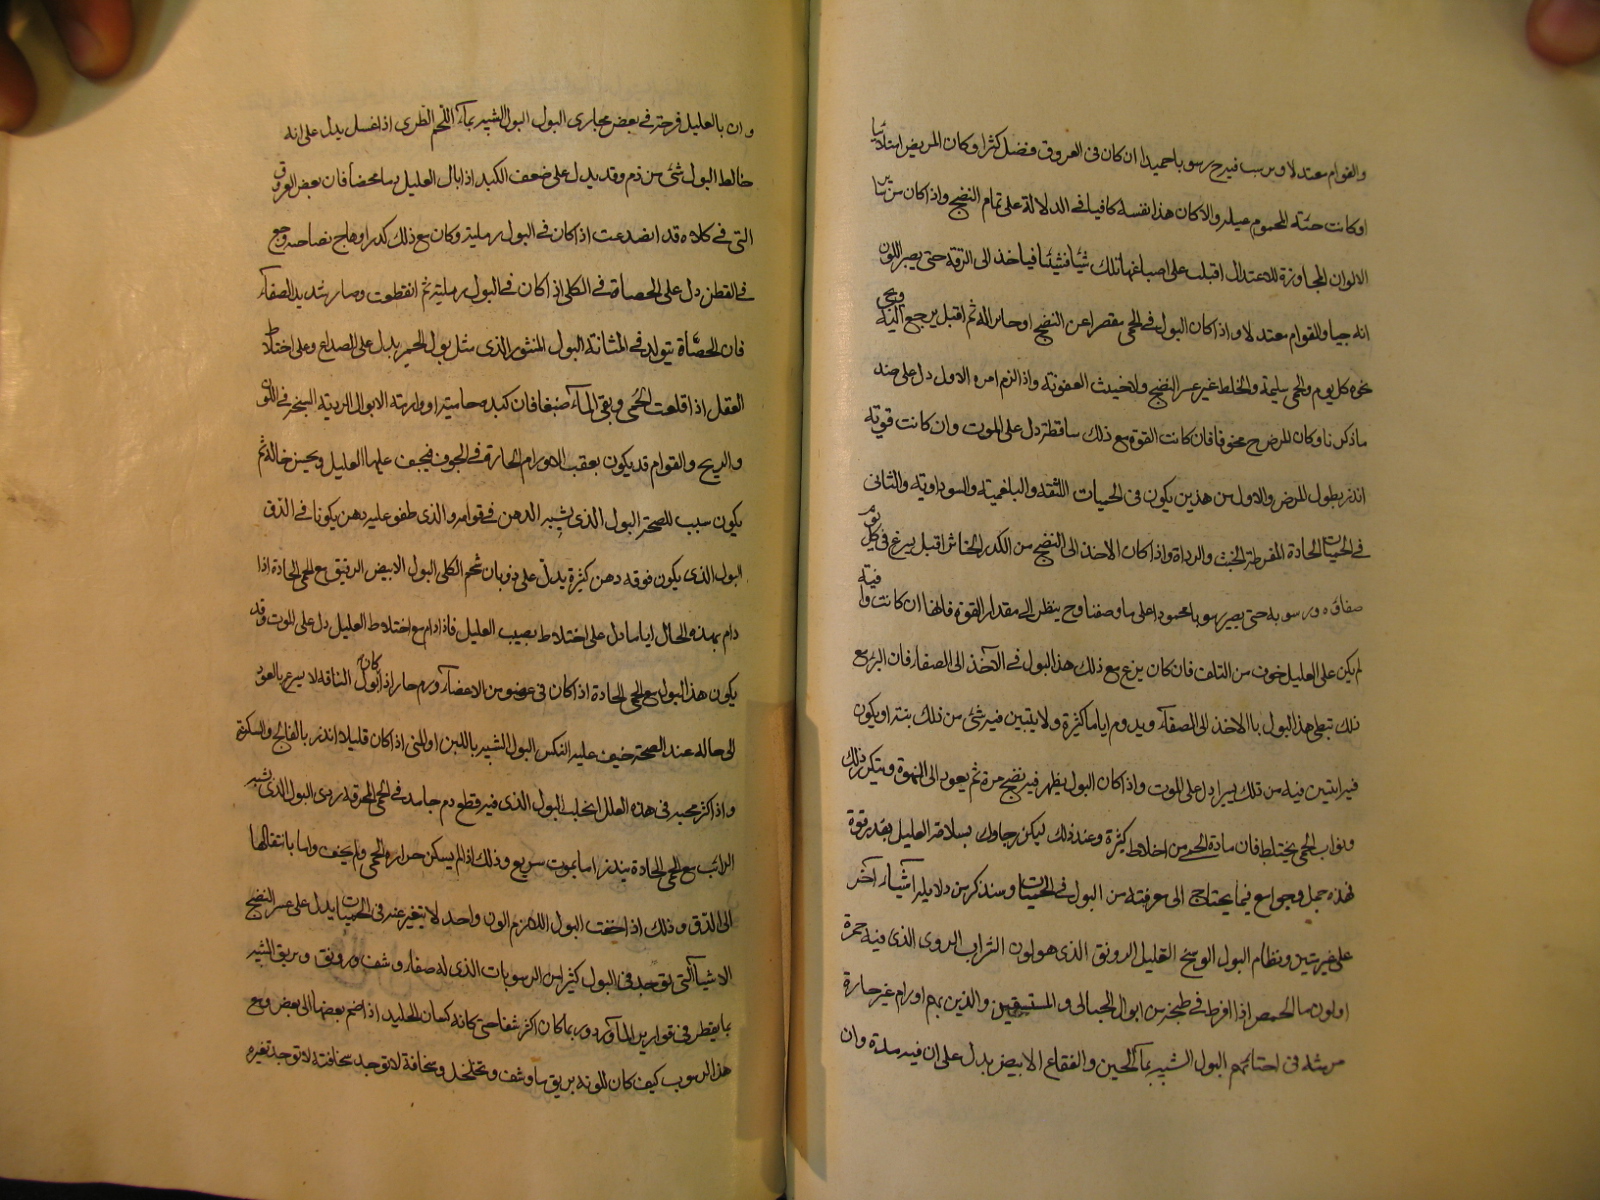 والقوام معتدلا ويرسب فيه ح رسوبا حميدا ان كان فى العروق فضل كثرا وكان المريض
او كانت حمته المحموم عيلر والاكان هذا نفسه كافيا فى الدلالة على تمام النضج واذا كان
الالوان المجاوزة للاعتدال اقبلت على اصباغها تلك شيئا فشيئا فياخذ الى الرقة حتى يصير اللون
اترجيا والقوام معتدلا واذا كان البول فى الحمى مقصرا عن النضج او حايرا له ثم اقبل يرجع اليه ويجى
نحوه كل يوم والحمى سليمة والخلط غير عسر النضج ولا خبيث العفونة واذا لزم امره الاول دل على ضد
ماذكرنا وكان المرض ح مخوفا فان كانت القوة مع ذلك ساقطة دل على الموت وان كانت قوية
انذر بطول المرض والاول من هذين يكون فى الحميات اللثقه والبلغمية والسوداوية والثانى
فى الحميات الحادة المفرطة الخبث والرداة واذا كان الاخذ الى النضج من الكدر الخاثر اقبل يسرع فى كل يوم
صفاؤه ورسوبه حتى يصير رسوبا محمودا على ما وصفنا وح ينظر الى مقدار القوة فانها ان كانت وافية
لم يكن على العليل خوف من التلف فان كان يزع مع ذلك هذا البول فى الآخذ الى الصفاء فان
ذلك تبطى هذا البول بالاخذ الى الصفاء ويدوم اياما كثيرة ولا يتبين فيه شئ من ذلك بتة او يكون
فيرا يتبين فيه من ذلك يسيرا دل على الموت واذا كان البول يظهر فيه نضج مرة ثم يعود الى النهوة ويتكرر ذلك
ونواب الحمى يختلط فان مادة الحمى من اخلاط كثيرة وعند ذلك ليكن رجاوك بسلامة العليل بقدر قوة
فهذه جمل وجوامع فيما يحتاج الى معرفته من البول فى الحميات وسنذكر من دلايله اشياء آخر
على غير ترتيب ونظام البول الوسخ القليل الرونق الذى هو لون الشراب الروى الذى فيه حمرة
او لون ماء الحمص اذا افرط فى طبخه من ابوال الحبالى والمستسقين والذين بهم اورام غير حارة
مزمنة فى احشائهم البول الشبيه بماء الجبن والفقاع الابيض يدل على ان فيه مدة وان
وان بالعليل قرحة فى بعض مجارى البول البول الشبيه بماء اللحم الطرى اذا غسل يدل على انه
خالط البول شئ من دم وقد يدل على ضعف الكبد اذا بال العليل دما محضا فان بعض العروق
التى فى كلاه قد انصدعت اذا كان فى البول رملية وكان مع ذلك كدرا وهاج بصاحبه وجع
فى القطن دل على الحصاة فى الكلى اذا كان فى البول رملية ثم انقطعت وصار شديد الصفاء
فان الحصاة تتولد فى المثانة البول المنثور الذى مثل بول الحمير يدل على الصداع وعلى اختلاط
العقل اذا اقلعت الحمى وبقى الماء صبغا فان كبده حاسية او وارمة الابوال الردية السبخر فى اللون
والريح والقوام قد يكون بعقب الاورام الحارة فى الجوف فيخف عليها العليل ويحسن حاله ثم
يكون سبب للصحة البول الذى يشبه الدهن فى قوامه والذى طفو عليه دهن يكونا فى الدق
البول الذى يكون فوقه دهن كثيرة يدل على ذوبان شحم الكلى البول الابيض الرقيق مع الحمى الحادة اذا
دام بهذه الحال اياما دل على اختلاط يصيب العليل فاذا دام مع اختلاط العليل دل على الموت وقد
يكون هذا البول مع الحمى الحادة اذا كان فى عضو من الاعضاء ورم حار اذا كان بول الناقه لا يسرع بالعود
الى حاله عند الصحة خيف عليه النكس البول الشبيه باللبن او المنى اذا كان قليلا انذر بالفالج والسكتة
واذا كثر مجيه فى هذه العلل انحلت البول الذى فيه قطع دم جامد فى الحمى المحرقة ردى البول الذى يشبه
الرائب مع الحمى الحادة ينذر اما بموت سريع وذلك اذا لم يسكن حراره الحمى ولم يخف واما بانتقالها
الى الدق وذلك اذا خفت البول اللازم اللون واحد لا يتغير عنه فى الحميات يدل على عسر النضج
الاشياء التى توجد فى البول كثيرا من الرسوبات الذى له صفاء وشف ورونق وبريق الشبيه
بما يقطر فى قوارير الماورد وربما كان اكثر شفا حتى كانه كسار الجليد اذا اضم بعضها الى بعض ومع
هذا الرسوب كيف كان للونه بريق ما وشف وتخلخل وسخافة لا توجد سخافته لا توجد تغيره